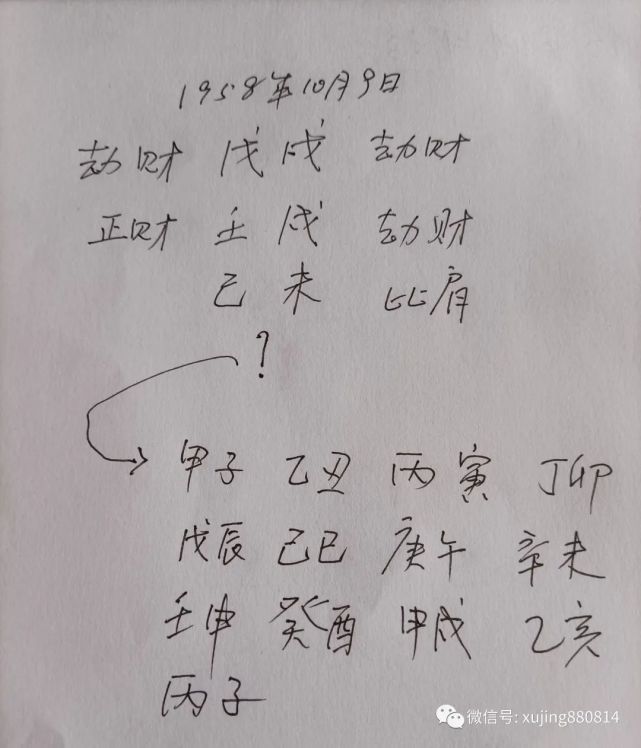 1958年10月9日
劫财 戊戌 劫财
正财 壬戌 劫财
己未 比肩
?
甲子 乙丑 丙寅 丁卯
戊辰 己巳 庚午 辛未
壬申 癸酉 甲戌 乙亥
丙子
微信号: xujing880814